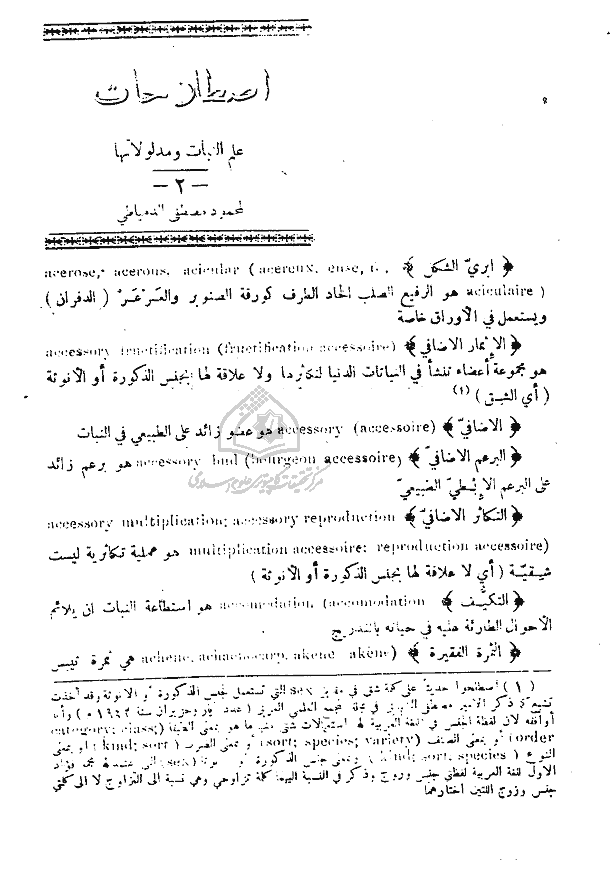 اصطلاحات
علم النبات ومدلولاتها
— ٢ —
لمحمود مصطفى الدمياطي
﴿ ابريّ الشكل ﴾ acerose, acerous, acicular (acéreux, euse,
aciculaire ) هو الرفيع الصلب الحاد الطرف كورقة الصنوبر والعَرعَر ( الدفران )
ويستعمل في الأوراق خاصة
﴿ الإثمار الاضافي ﴾ accessory fructification (fructification accessoire)
هو مجموعة أعضاء تنشأ في النباتات الدنيا لتكاثرها ولا علاقة لها بجنس الذكورة أو الأنوثة
( أي الشبق ) (١)
﴿ الاضافيّ ﴾ accessory (accessoire) هو عضو زائد على الطبيعي في النبات
﴿ البرعم الاضافيّ ﴾ accessory bud (bourgeon accessoire) هو برعم زائد
على البرعم الإبْطيّ الطبيعيّ
﴿ التكاثر الاضافيّ ﴾ accessory multiplication; accessory reproduction
multiplication accessoire: reproduction accessoire) هو عملية تكاثرية ليست
شبقيّة ( أي لا علاقة لها بجنس الذكورة أو الأنوثة )
﴿ التكيُّف ﴾ accomodation (accomodation هو استطاعة النبات ان يلائم
الأحوال الطارئة عليه في حياته بالتدريج
﴿ الثمرة الفقيرة ﴾ achene, achaenocarp, akene akène) هي ثمرة تيبس
( ١ ) اصطلحوا حديثاً على كلمة شق في sex التي تستعمل لجنس الذكورة أو الانوثة وقد أخذت
ذكر الأمير مصطفى في مجلة المجمع العلمي العربي ( عدد وحزيران سنة
أوافقه لان لفظة الجنس في اللغة العربية لها استعمالات شتى منها ما هو بمعنى category; class;)
order) أو بمعنى الصنف (sort; species; variety) أو بمعنى الضرب ( kind; sort ) أو بمعنى
النوع ( kind; sort, species ) وبمعنى جنس الذكورة أو (sex)
الاول للغة العربية لفظي جنس وزوج وذكر في النسبة اليهما كلمة تزاوجي وهي نسبة الى التزاوج لا الى كلمتي
جنس وزوج اللتين اختارهما